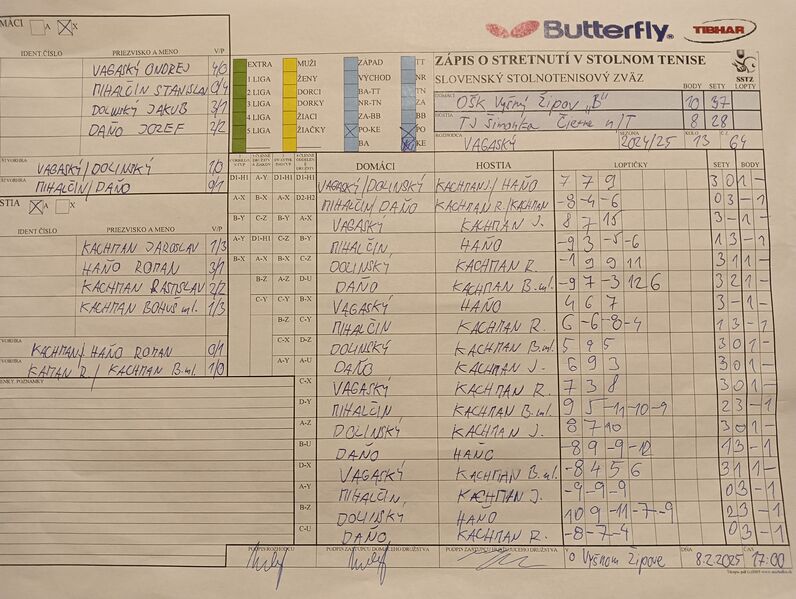 Butterfly TIBHAR
ZÁPIS O STRETNUTÍ V STOLNOM TENISE
SLOVENSKÝ STOLNOTENISOVÝ ZVÄZ
SSTZ
BODY SETY LOPTY
OŠK Vyšný Žipov „B" 10 37
HOSTIA TJ Šimonka Čierne n/T 8 28
ROZHODCA VAGASKÝ SEZONA 2024/25 KOLO 13 Č.Z. 64
A X
IDENT.ČÍSLO PRIEZVISKO A MENO V/P
VAGASKÝ ONDREJ 4/0
MIHALČIN STANISLAV 0/4
DOLINSKÝ JAKUB 3/1
DAŇO JOZEF 2/2
VAGASKÝ/DOLINSKÝ 1/0
MIHALČIN/DAŇO 0/1
A X
IDENT.ČÍSLO PRIEZVISKO A MENO V/P
KACHMAN JAROSLAV 1/3
HAŇO ROMAN 3/1
KACHMAN RASTISLAV 2/2
KACHMAN BOHUŠ ml. 1/3
KACHMAN/HAŇO ROMAN 0/1
KACHMAN B.ml. 1/0
POZNÁMKY
EXTRA MUŽI ZÁPAD TT
1 LIGA ŽENY VÝCHOD NR
2 LIGA DORCI BA-TT TN
3 LIGA DORKY NR-TN ZA
4 LIGA ŽIACI ZA-BB BB
5 LIGA ŽIAČKY PO-KE PO
BA KE
DOMÁCI HOSTIA LOPTIČKY SETY BODY
VAGASKÝ/DOLINSKÝ KACHMAN J/HAŇO 7 7 9 3 0 1 –
MIHALČIN/DAŇO KACHMAN R./KACHMAN -8 -4 -6 0 3 – 1
VAGASKÝ KACHMAN J. 8 7 15 3 – 1 –
MIHALČIN HAŇO -9 3 -5 -6 1 3 – 1
DOLINSKÝ KACHMAN R. -1 9 9 11 3 1 1 –
DAŇO KACHMAN B.ml. -9 7 -3 12 6 3 2 1 –
VAGASKÝ HAŇO 4 6 7 3 – 1 –
MIHALČIN KACHMAN R. 6 -6 -8 -4 1 3 – 1
DOLINSKÝ KACHMAN B.ml. 5 9 5 3 0 1 –
DAŇO KACHMAN J. 6 9 3 3 0 1 –
VAGASKÝ KACHMAN R. 7 3 8 3 0 1 –
MIHALČIN KACHMAN B.ml. 9 5 -11 -10 -9 2 3 – 1
DOLINSKÝ KACHMAN J. 8 7 10 3 0 1 –
DAŇO HAŇO -8 9 -9 -12 1 3 – 1
VAGASKÝ KACHMAN B.ml. -8 4 5 6 3 1 1 –
MIHALČIN KACHMAN J. -9 -9 -9 0 3 – 1
DOLINSKÝ HAŇO 10 9 -11 -7 -9 2 3 – 1
DAŇO KACHMAN R. -8 -7 -4 0 3 – 1
PODPIS ROZHODCU PODPIS ZÁSTUPCU DOMÁCEHO DRUŽSTVA PODPIS ZÁSTUPCU HOSŤUJÚCEHO DRUŽSTVA V Vyšnom Žipove DŇA 8.2.2025 ČAS 17:00